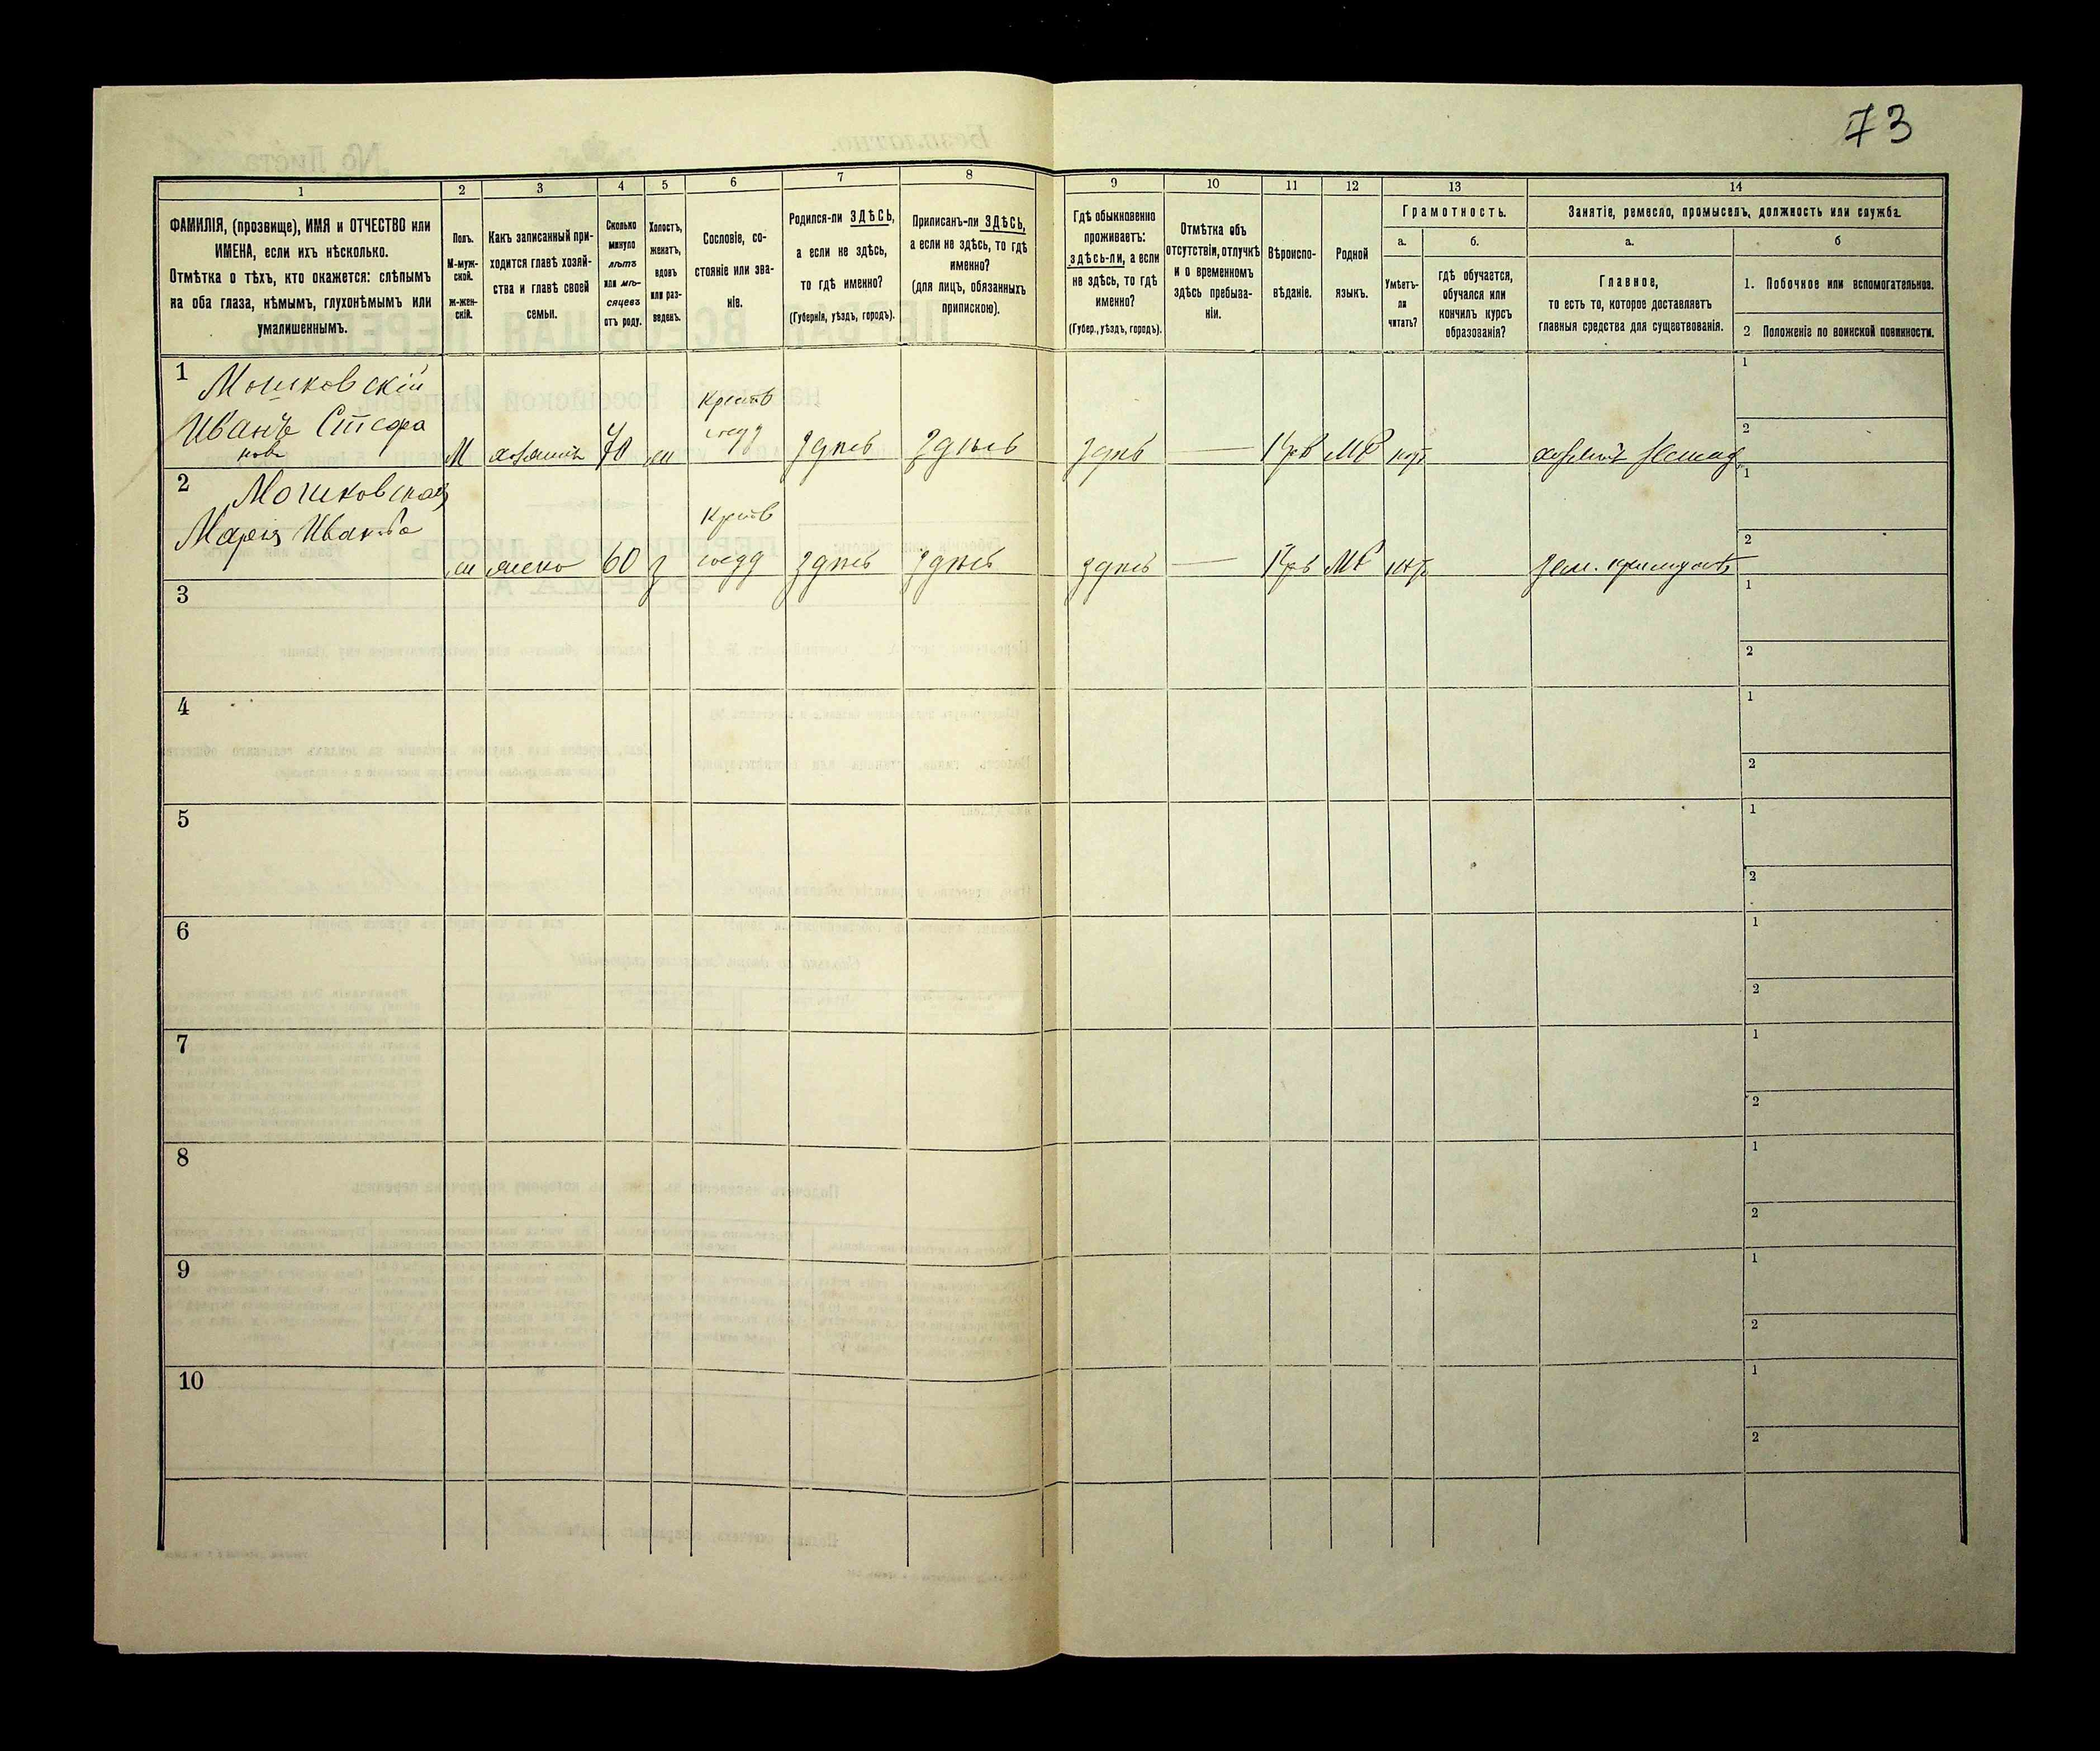 73
1
2
3
4
5
6
7
8
9
10
11
12
13
14
ФАМИЛІЯ, (прозвище), ИМЯ и ОТЧЕСТВО или
ИМЕНА, если ихъ нѣсколько.
Отмѣтка о тѣхъ, кто окажется: слѣпымъ
на оба глаза, нѣмымъ, глухонѣмымъ или
умалишеннымъ.
Полъ.
М-муж-
ской.
ж-жен-
скій.
Какъ записанный при-
ходится главѣ хозяй-
ства и главѣ своей
семьи.
Сколько
минуло
лѣтъ
или мѣ-
сяцевъ
отъ роду.
Холостъ,
женатъ,
вдовъ
или раз-
веденъ.
Сословіе, со-
стояніе или зва-
ніе.
Родился-ли ЗДѢСЬ,
а если не здѣсь,
то гдѣ именно?
(Губернія, уѣздъ, городъ).
Приписанъ-ли ЗДѢСЬ,
а если не здѣсь, то гдѣ
именно?
(для лицъ, обязанныхъ
припискою).
Гдѣ обыкновенно
проживаетъ:
здѣсь-ли, а если
не здѣсь, то гдѣ
именно?
(Губер., уѣздъ, городъ).
Отмѣтка объ
отсутствіи, отлучкѣ
и о временномъ
здѣсь пребыва-
ніи.
Вѣроиспо-
вѣданіе.
Родной
языкъ.
Грамотность.
а.
Умѣетъ-
ли
читать?
б.
гдѣ обучается,
обучался или
кончилъ курсъ
образованія?
Занятіе, ремесло, промыселъ, должность или служба.
а.
Главное,
то есть то, которое доставляетъ
главныя средства для существованія.
б
1. Побочное или вспомогательное.
2 Положеніе по воинской повинности.
1
Мошковскій
Иванъ Стефа
новъ
М
хозяинъ
70
жн
здѣсь
здѣсь
здѣсь
—
МР
1
2
2
Мошковская
Марія Иванова
ж
жена
60
з
здѣсь
здѣсь
здѣсь
—
МР
1
2
3
1
2
4
1
2
5
1
2
6
1
2
7
1
2
8
1
2
9
1
2
10
1
2